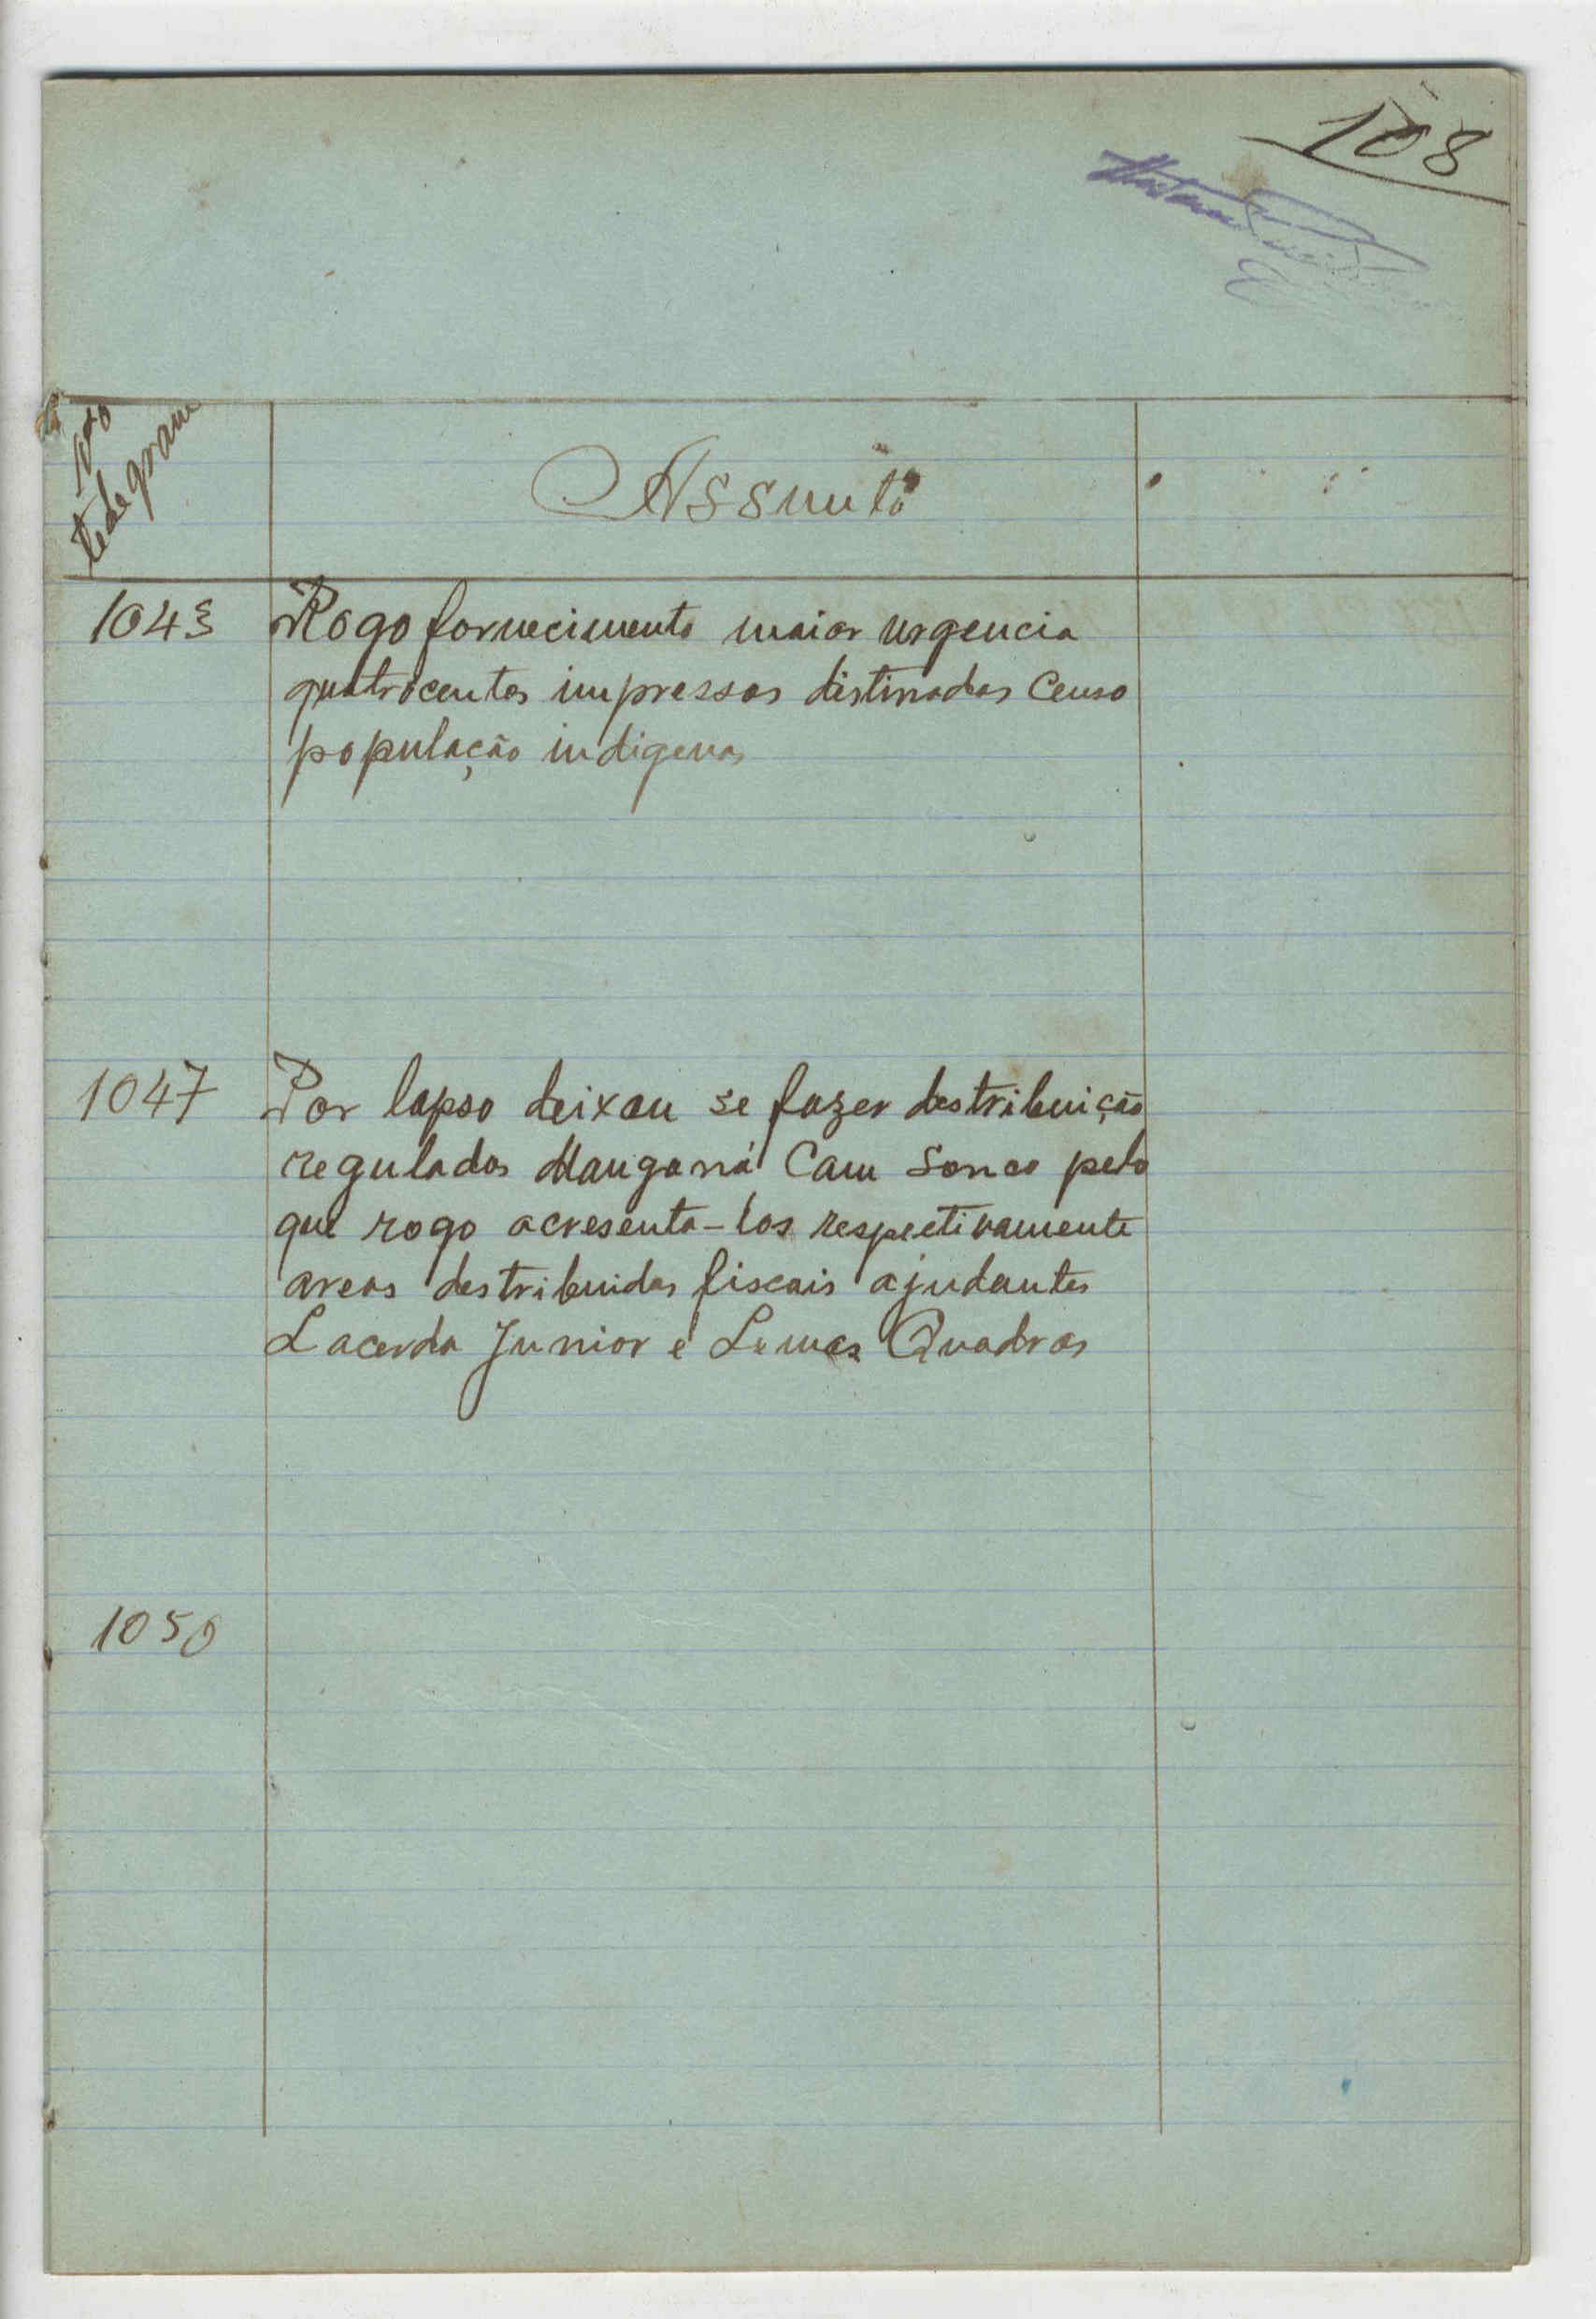 108
telegrama
Assunto
1043 Rogo fornecimento maior urgencia
quatrocentos impressos distinados Censo
população indigena
1047 Por lapso deixou se fazer destribuição
regulados Manganá Cam Sonco pelo
que rogo acresenta-los respectivamente
areas destribuidas fiscais ajudantes
Lacerda Junior e Lemos Quadros
1050